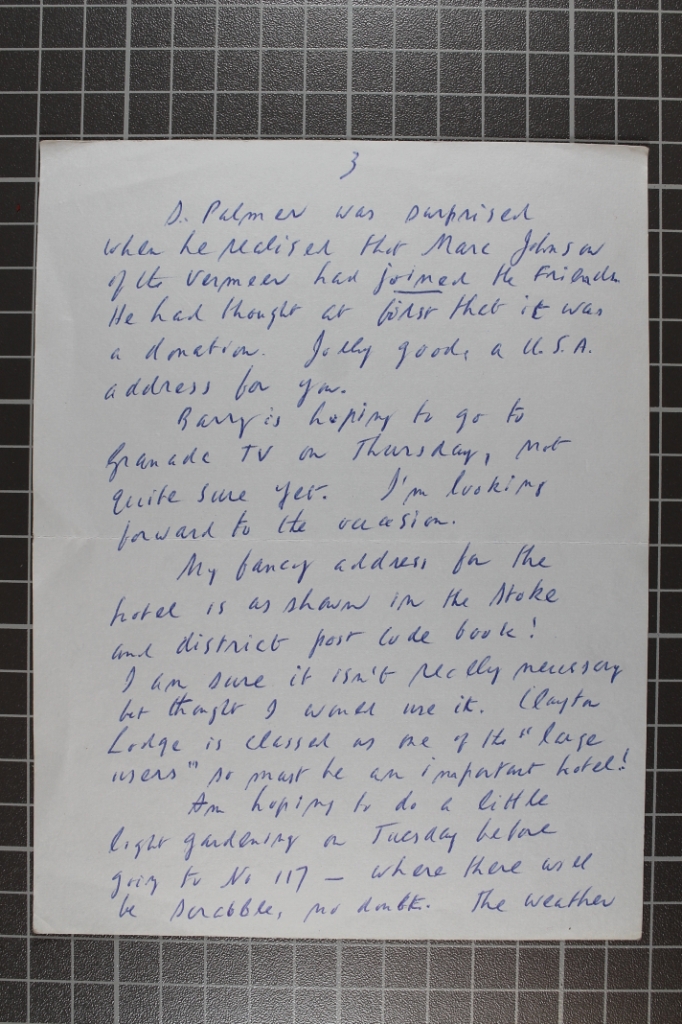 3
D. Palmer was surprised
when he realised that Marc Johnson
of the Vermeer had joined the Friends.
He had thought at first that it was
a donation. Jolly good, a U.S.A.
address for you.
Barry is hoping to go to
Granada TV on Thursday, not
quite sure yet. I'm looking
forward to the occasion.
My fancy address for the
hotel is as shown in the Stoke
and district post code book!
I am sure it isn't really necessary
but thought I would use it. Clayton
Lodge is classed as one of the "large
users" so must be an important hotel!
Am hoping to do a little
light gardening on Tuesday before
going to No 117 — where there will
be scrabble, no doubt. The weather